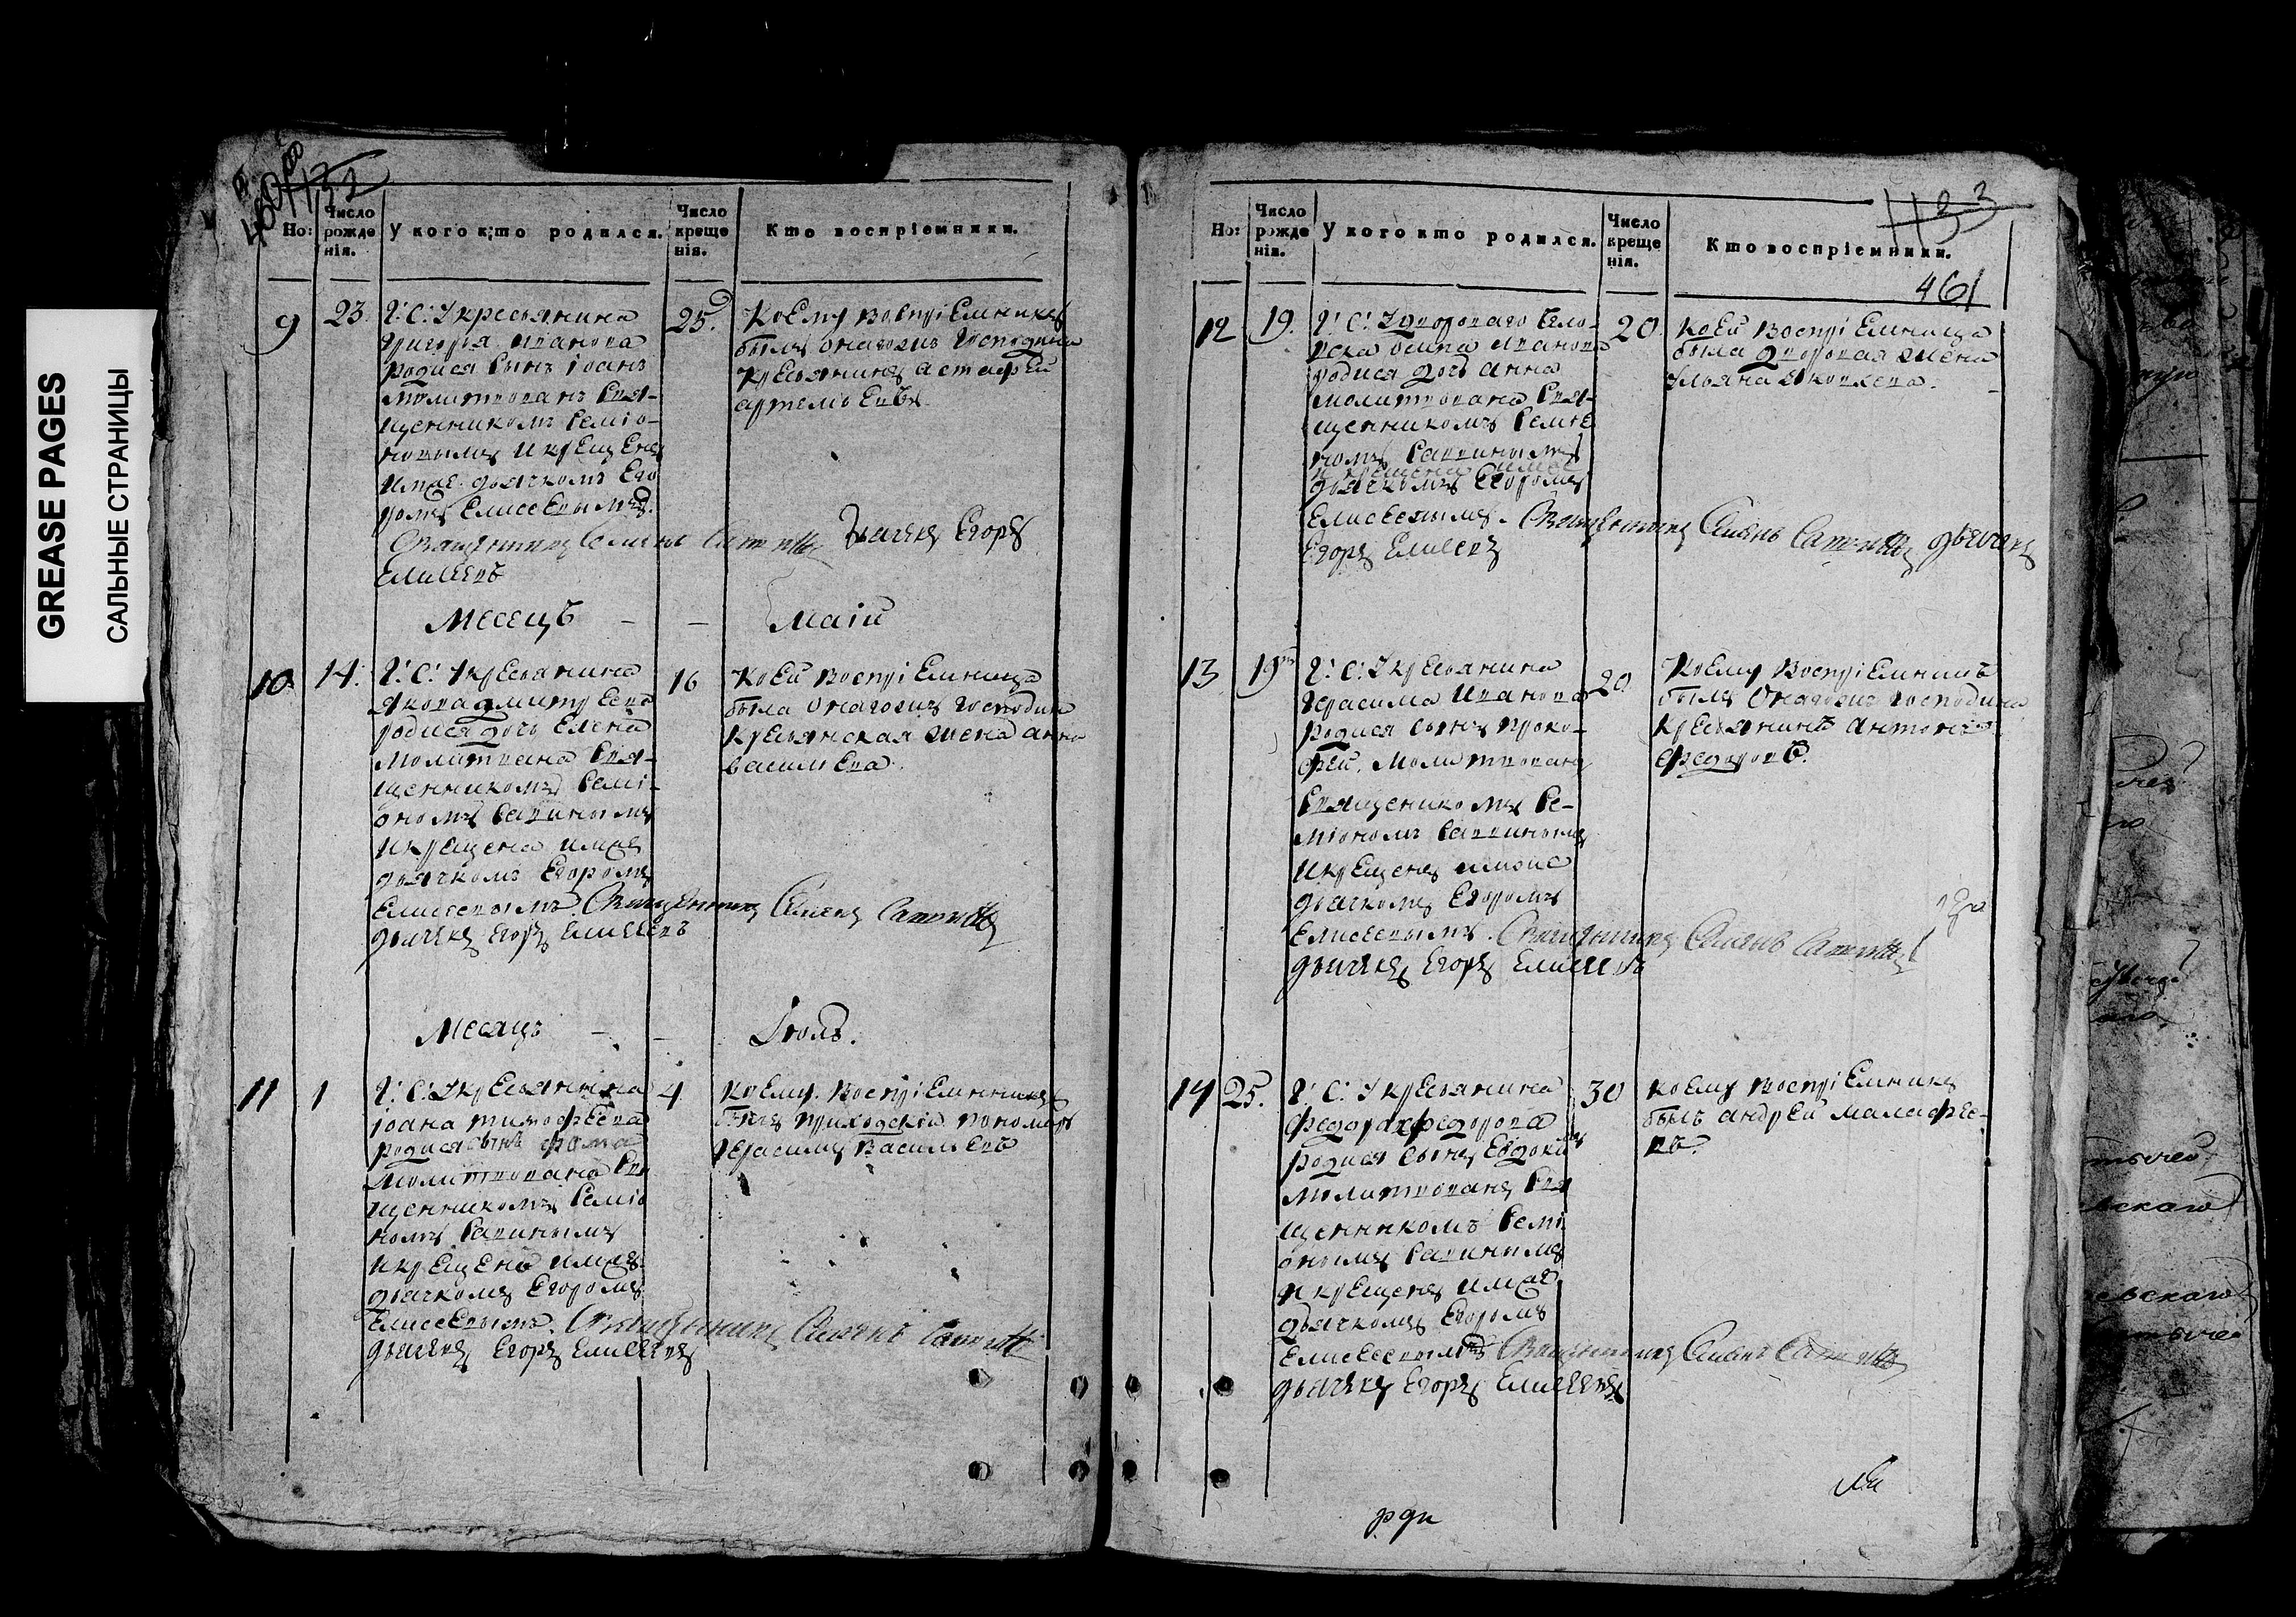 GREASE PAGES
САЛЬНЫЕ СТРАНИЦЫ
460
1132
Но:
Число рожде нія.
У кого кто родился.
Число креще нія.
Кто воспріемники.
9
23.
Г: С: У крестьянина
григорья иванова
родися сынъ іоанъ
молитвованъ свя-
щенникомъ семіо-
новымъ и крещенъ
им же дьячкомъ его
ромъ Елисеевымъ.
25.
коему воспріемникъ
былъ онагожъ господина
крестьянинъ астафей
артемьевъ
Священникъ Семенъ дьячекъ Егоръ
Елисеевъ
Месецъ - - Маій
10
14.
Г: С: У крестьянина
якова дмитреева
родися дочь Елена
молитвована свя-
щенникомъ семі-
ономъ савинымъ
и крещена им же
дьячкомъ Егоромъ
Елисеевымъ. Священникъ Семенъ
дьячекъ Егоръ Елисеевъ
16
коей воспріемница
была онагожъ господина
крестьянская жена анна
васильева.
Месяцъ - - Іюль.
11
1
Г: С: У крестьянина
іоана тимофеева
родися сынъ фома
молитвована свя
щенникомъ семіо
номъ савинымъ
и крещенъ им же
дьячкомъ Егоромъ
Елисеевымъ. Священникъ Семенъ
дьячекъ Егоръ Елисеевъ
4
коему воспріемникъ
былъ приходской пономарь
герасимъ васильевъ
1133
Но:
Число рожде нія.
У кого кто родился.
Число креще нія.
Кто воспріемники.
461
12
19.
Г: С: У двороваго чело-
века осипа иванова
родися дочь анна
молитвована свя-
щенникомъ семіо
номъ савинымъ
и крещена им же
дьячкомъ Егоромъ
Елисеевымъ. Священникъ Семенъ дьячекъ
Егоръ Елисеевъ
20
коей воспріемница
была дворовая жена
ульяна яковлева.
13
19
Г: С: У крестьянина
герасима иванова
родися сынъ проко-
фей. молитвованъ
священикомъ се-
міономъ савинымъ
и крещенъ им же
дьячкомъ Егоромъ
Елисеевымъ. Священникъ Семенъ
дьячекъ Егоръ Елисеевъ
20
коему воспріемникъ
былъ онагожъ господина
крестьянинъ антонъ
федоровъ.
14
25.
Г: С: У крестьянина
федора федорова
родися сынъ Евдокимъ
молитвованъ свя
щенникомъ семі
ономъ савинымъ
и крещенъ им же
дьячкомъ Егоромъ
Елисеевымъ Священникъ Семенъ
дьячекъ Егоръ Елисеевъ
30
коему воспріемникъ
былъ андрей малафее-
въ.